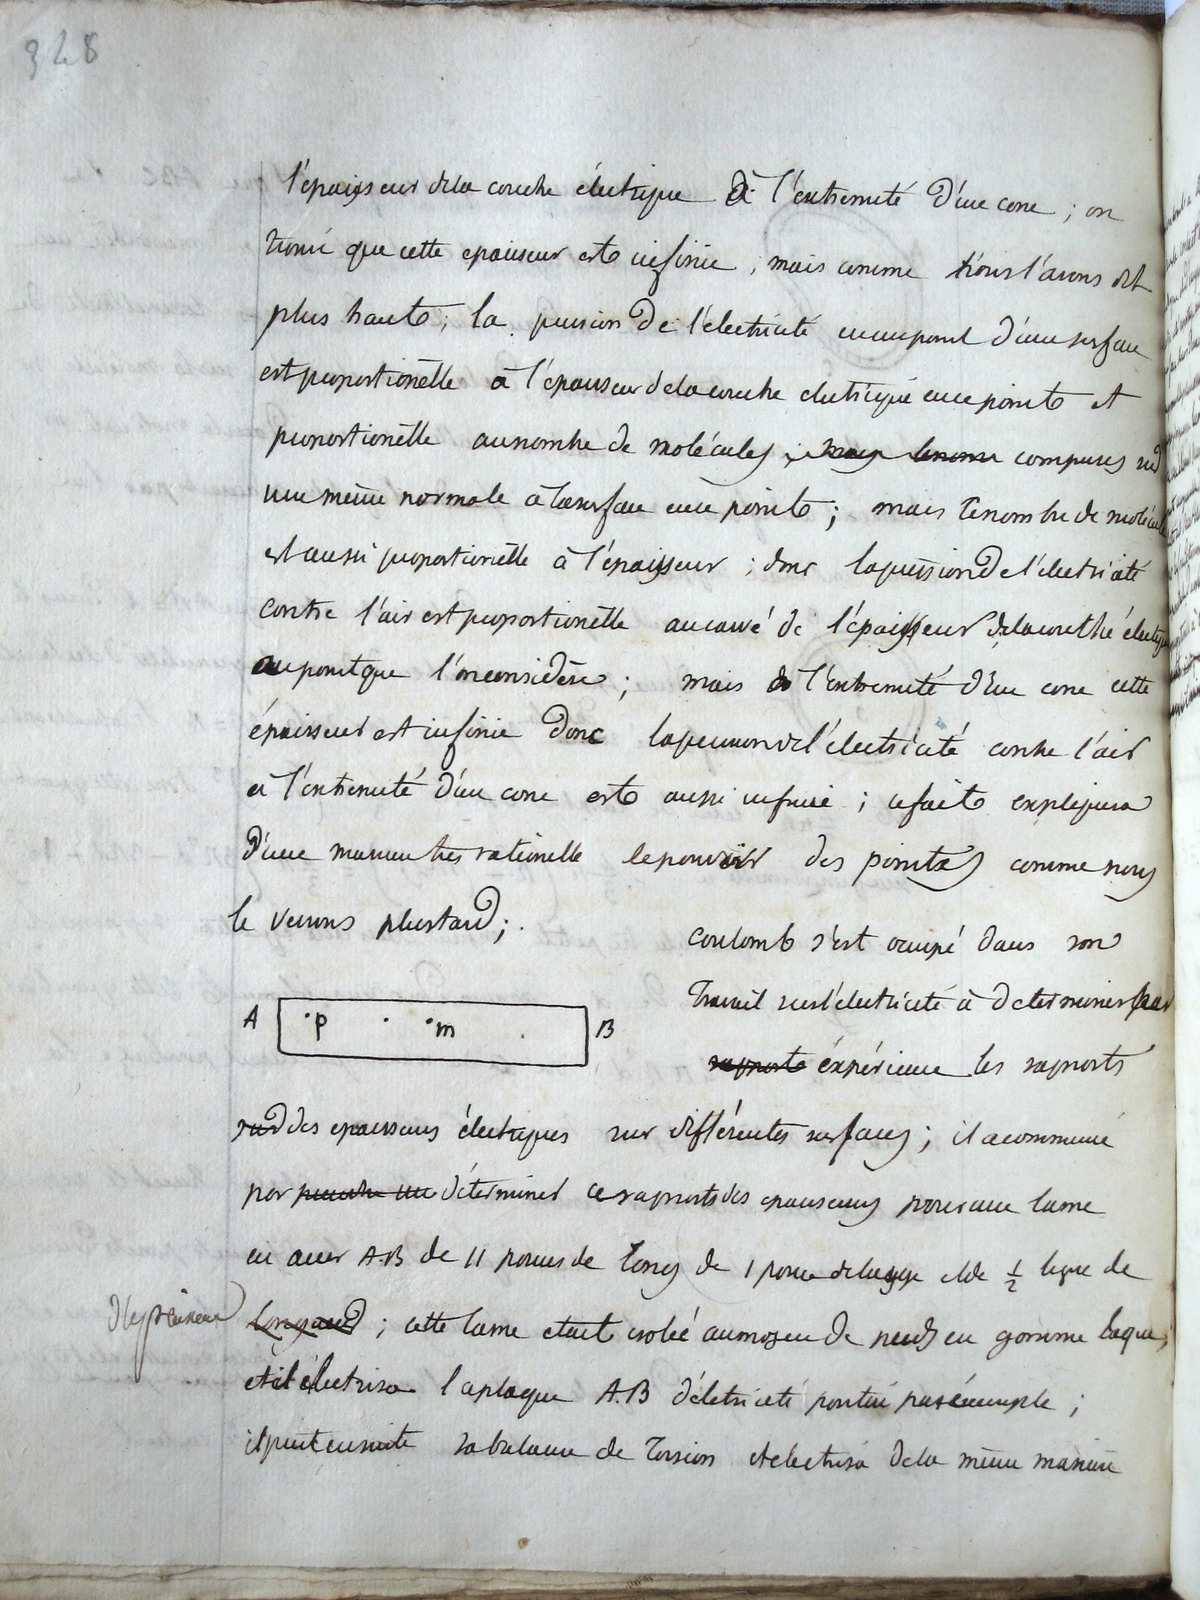 328
l'épaisseur dela couche électrique à l'extremité d'un cone ; on
trouve que cette epaisseur est infinie ; mais comme nous l'avons dit
plus haut ; la pression de l'électricité en un point d'une surface
est proportionelle à l'épaisseur dela couche electrique en ce point et
proportionelle au nombre de molécules ; mais lenom comprises sur
une même normale à la surface en ce point ; mais le nombre de molécules
est aussi proportionelle à l'épaisseur ; donc la pression de l'électricité
contre l'air est proportionelle au carré de l'épaisseur dela couche électrique
au point que l'on considère ; mais à l'extremité d'un cone cette
épaisseur est infinie donc la pression de l'électricité contre l'air
à l'extremité d'un cone est aussi infinie ; ce fait expliquera
d'une maniere très rationelle le pouvoir des pointes comme nous
le verrons plus tard ;.
coulomb s'est occupé dans son
Travail sur l'électricité à determiner par
A p m B
rapport éxpérience les rapports
sur des epaisseurs électriques sur différentes surfaces ; il a commencé
par déterminer ce rapports des epaisseurs pour une lame
en acier A.B de 11 pouces de long de 1 pouce de large et de 1/2 ligne de
d'épaisseur Longueur ; cette lame etait isolée au moyen de pieds en gomme laque,
et il électrisa la plaque A.B d'éléctricité positive par éxemple ;
il prit ensuite sa balance de Torsion et electrisa de la même manière